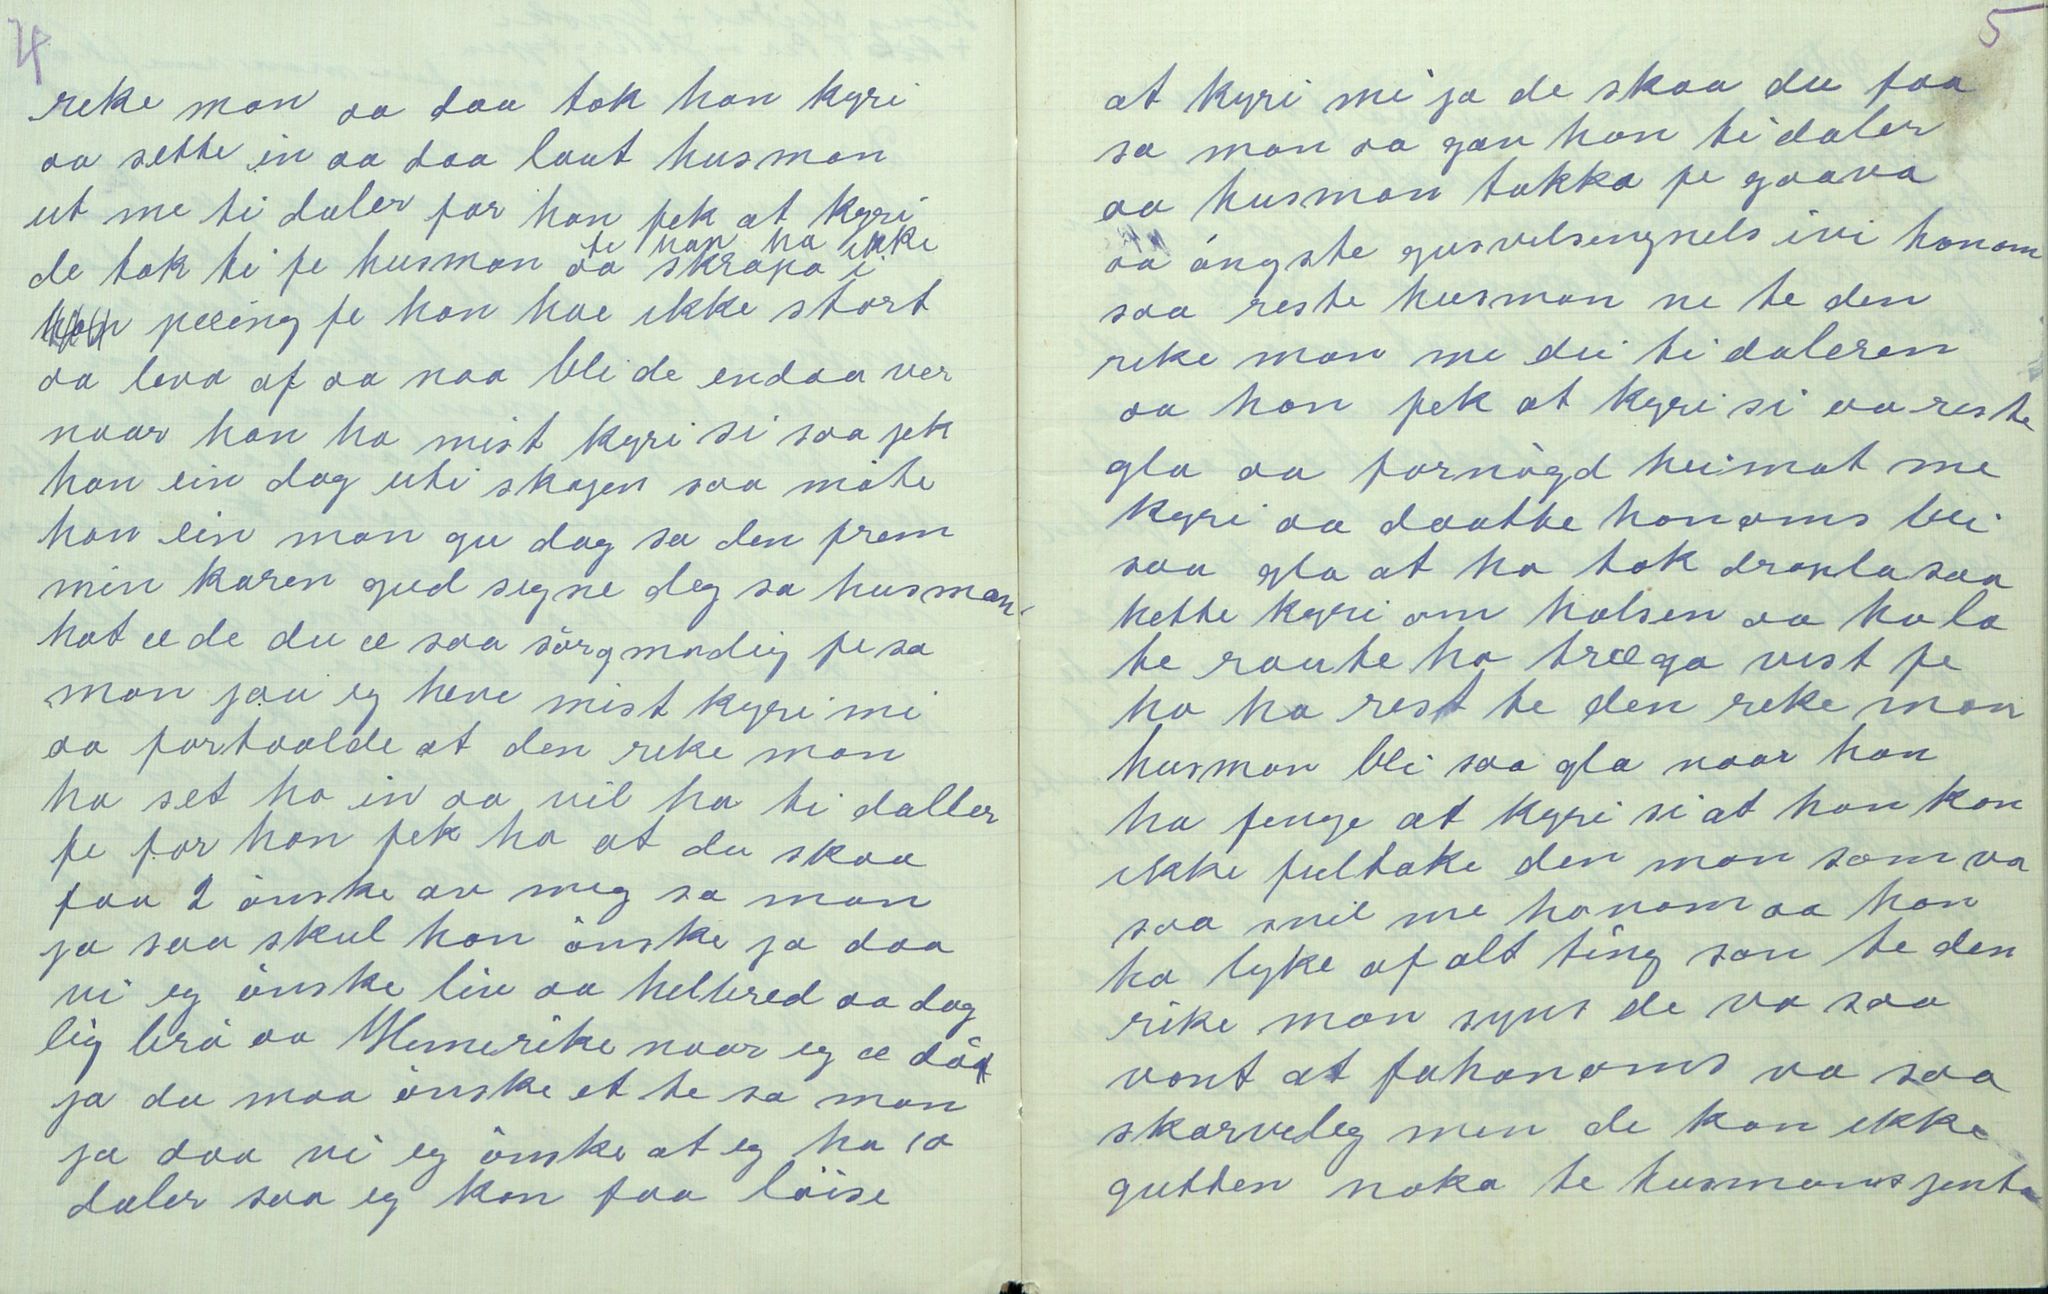 4
reke man aa daa tok han kyri
aa sette in aa daa laut husman
ut me ti daler for han fek at kyri
de tok ti fe husman te han ha ikke
aa skrapa i
pæing fe han hae ikke stort
aa leva af aa naa blide endaa ver
naar han ha mist kyri si saa jek
han ein dag uti skogen saa möte
han ein man gu dag sa den frem
min karen gud signe deg sa husman
hat æ de du æ saa sörgmodig fe sa
man jau eg heve mist kyri mi
aa fortaalde at den reke man
ha set ho in aa vil ha ti daller
fe for han fek ho at du skaa
faa 2 önske av meg sa man
ja saa skul han önske ja daa
vi eg önske liv aa helbred aa dag
lig brö aa Hemerike naar eg æ död
ja du maa önske et te sa man
ja daa vi eg önske at eg ha 10
daler saa eg kan faa löise
5
at kyri mi ja de skaa du faa
sa man aa gav han ti daler
aa husman takka fe gaava
aa öngste gusvelsengnels ivi honom
saa reste husman ne te den
reke man me dei ti daleren
aa han fek at kyri si aa reste
gla aa fornögd heimat me
kyri aa daatte honoms blei
saa gla at ho tok drapla saa
kette kyri om halsen aa ho la
te raute ho træga vist fe
ho ha rest te den reke man
husman blei saa gla naar han
ha fenge at kyri si at han kan
ikke fultake den man som va
saa snil me honom aa han
ha lyke af alt ting son te den
rike man syns de va saa
vont at fahanoms va saa
skarveleg men de kan ikke
gutten noka te husmans jenta